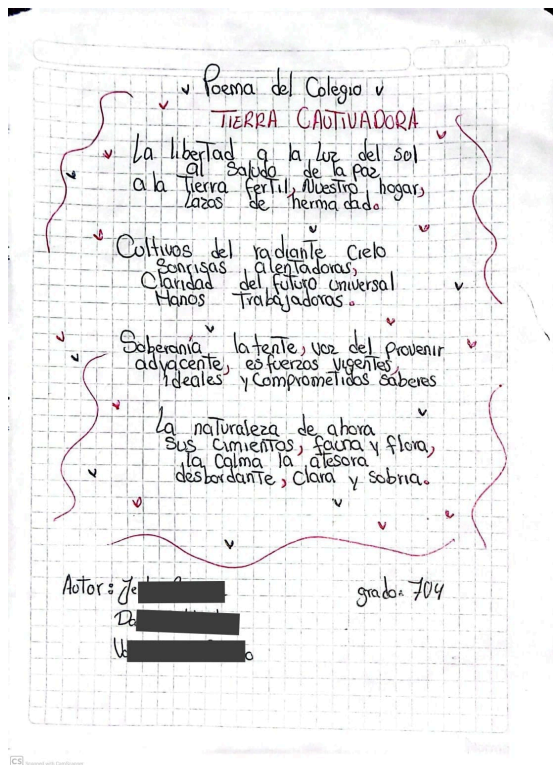 Poema del Colegio
TIERRA CAUTIVADORA
La libertad a la Luz del sol
al Saludo de la paz
a la Tierra fertil, Nuestro hogar,
Lazos de herma dad.
Cultivos del radiante Cielo
Sonrisas alentadoras,
Claridad del futuro universal
Manos Trabajadoras.
Soberanía latente, voz del provenir
adyacente, esfuerzos vigentes,
ideales y Comprometidos saberes
La naturaleza de ahora
Sus Cimientos, fauna y flora,
la Calma la atesora
desbordante, Clara y sobria.
Autor: Je
grado: 704
Da
o
CS